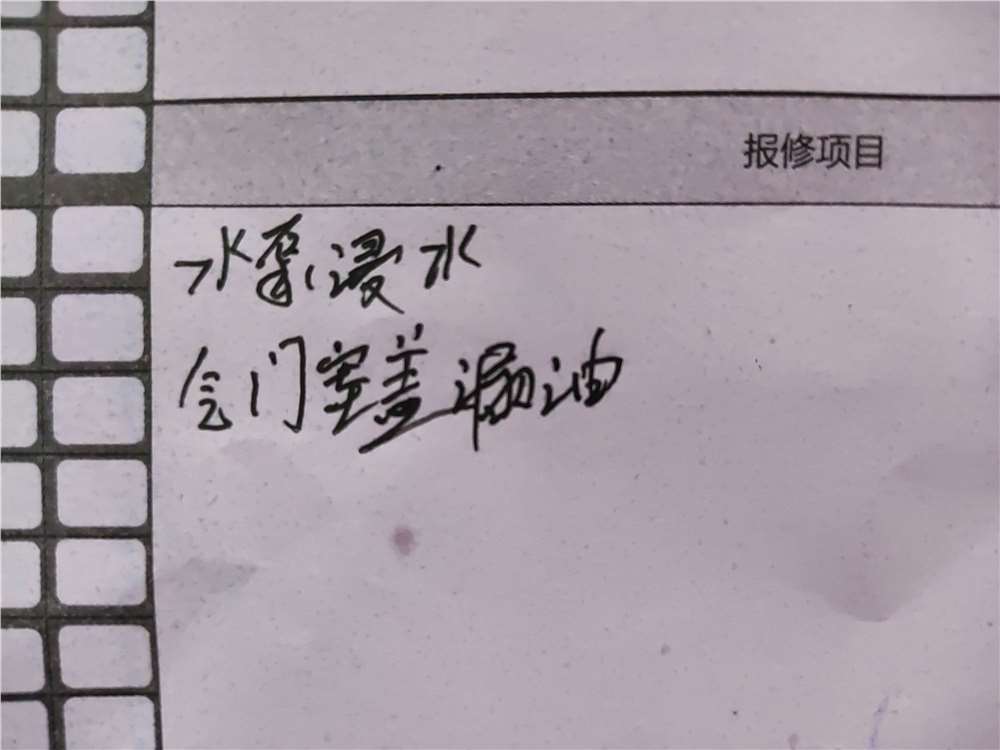 报修项目
水泵浸水
气门室盖漏油